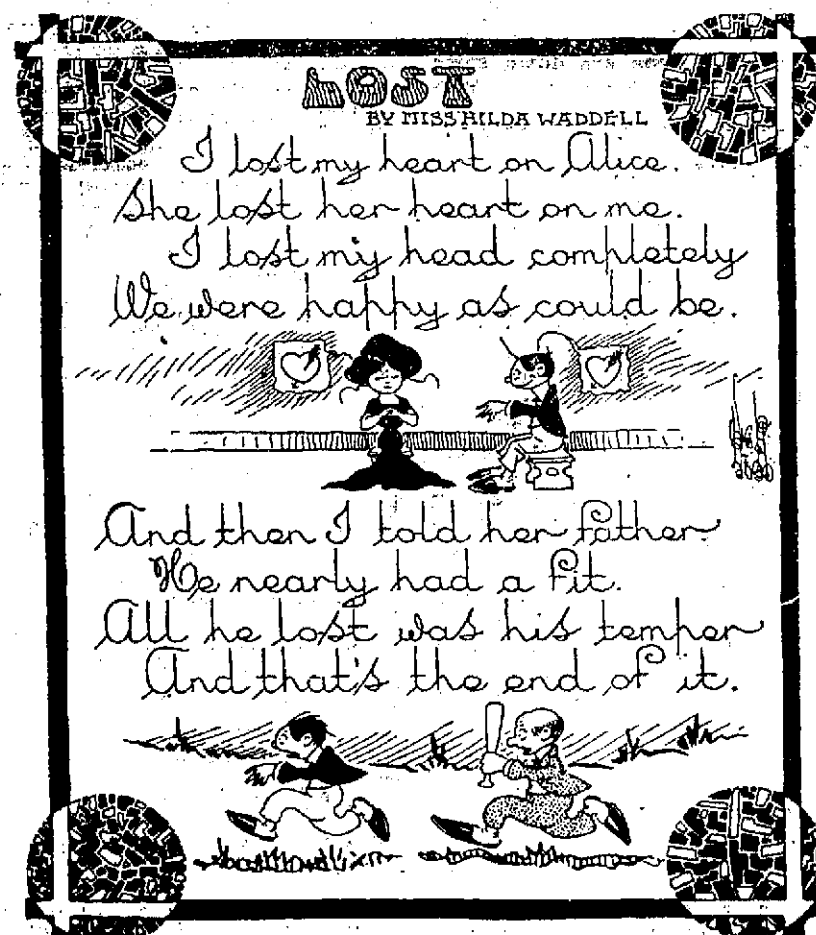 LOST
BY MISS HILDA WADDELL
I lost my heart on Alice.
She lost her heart on me.
I lost my head completely
We were happy as could be.
And then I told her father.
He nearly had a fit.
All he lost was his temper
And that's the end of it.